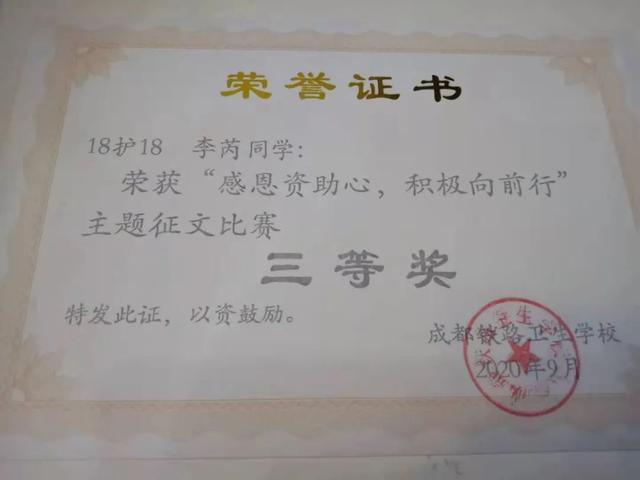 荣誉证书
18护18 李芮同学:
荣获“感恩资助心，积极向前行”
主题征文比赛
三等奖
特发此证，以资鼓励。
成都铁路卫生学校
2020年9月